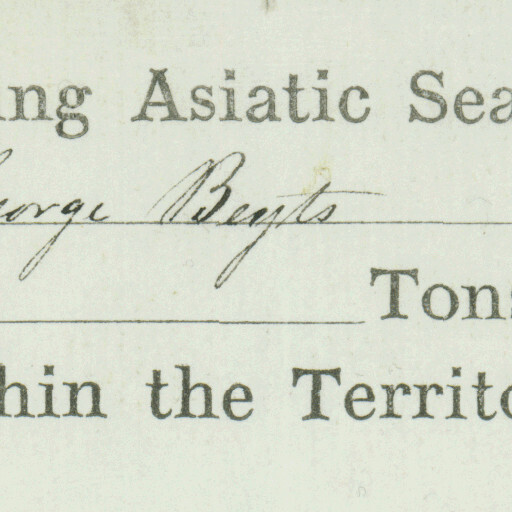 ing Asiatic Sea
eorge Beyts
Tons
hin the Territo